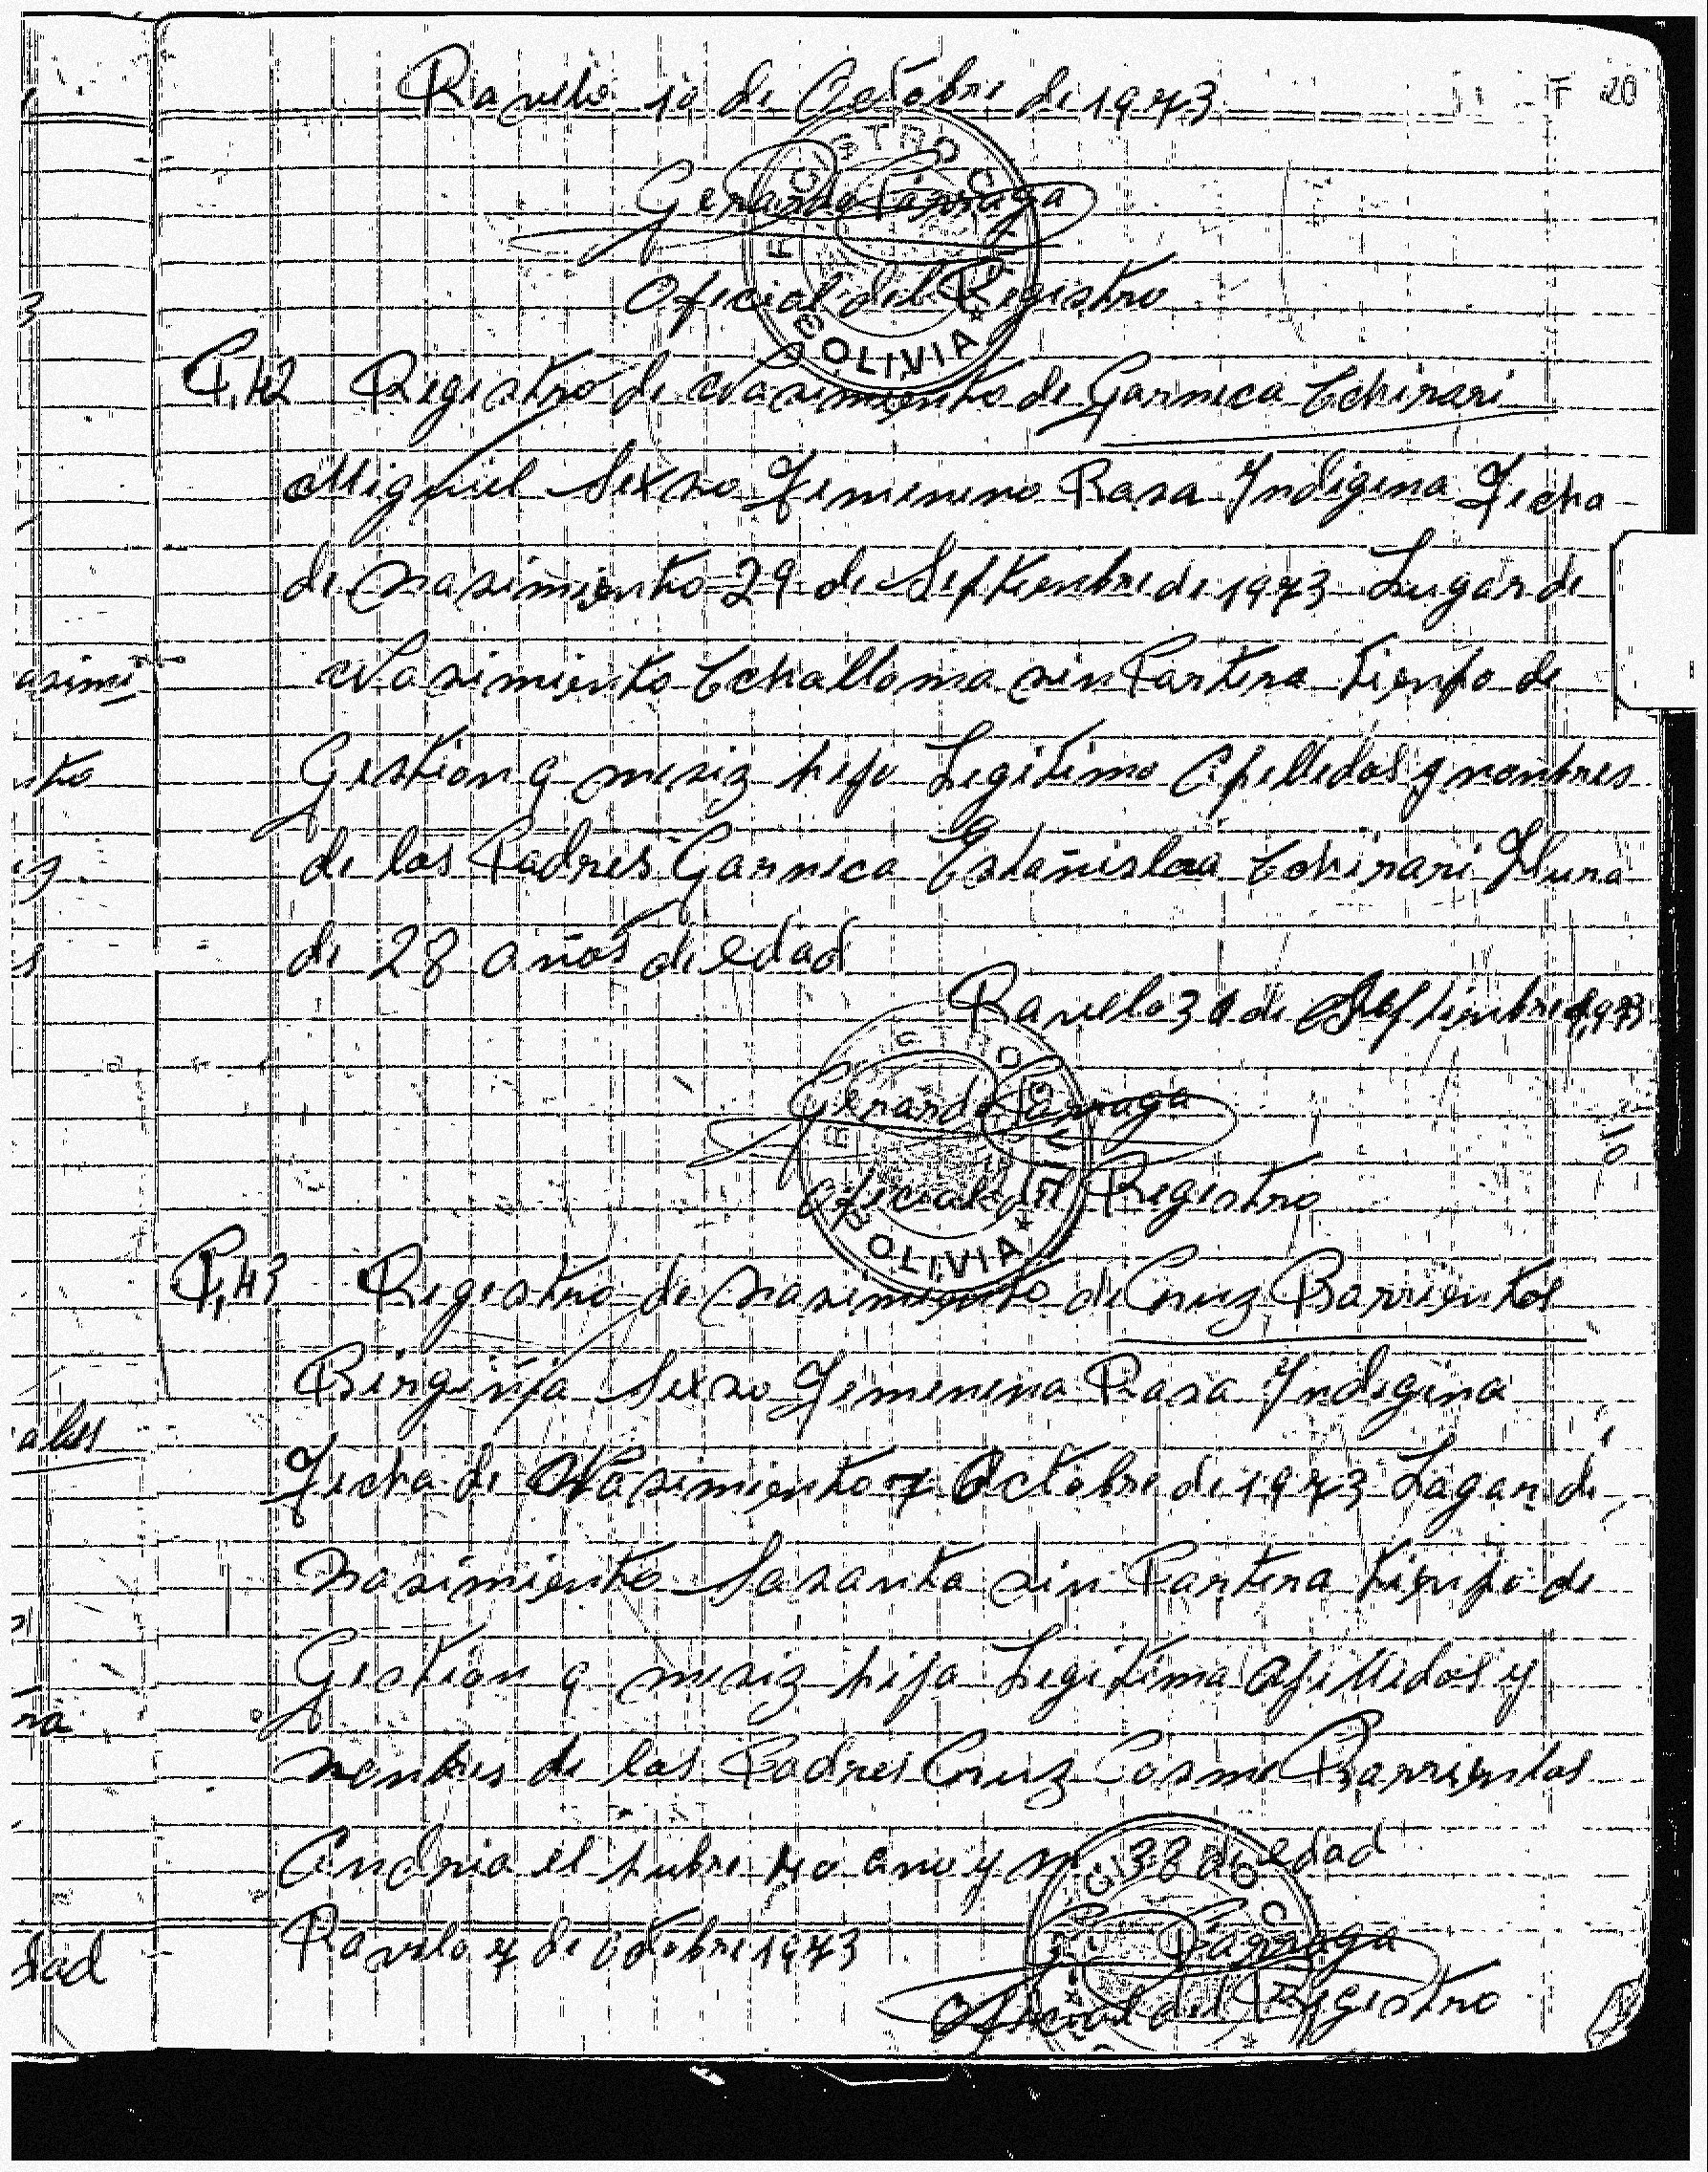 Ravelo 10 de Octobre de 1973
F 20
REGISTRO CIVIL
Gerardo Párraga
Oficial del Registro
BOLIVIA
P,42 Registro de Nasimiento de Garneca Cchirari
Miguel Sexso Femeneno Rasa Indigena Fecha
de Nasimiento 29 de Seftienbre de 1973 Lugar de
Nasimiento Cchalloma sin Partera tienpo de
Gestion 9 mesiz hijo Legitimo Apelledos y nonbres
de los Padres Garneca Estanislaa Cchirari
de 28 años de edad
Ravelo 30 de Seftienbre 1973
Gerardo Párraga
Oficial del Registro
BOLIVIA
P,43 Registro de Nasimiento de Cruz Barrientos
Birginia Sexso Femenena Rasa Indegena
Fecha de Nasimiento 7 Octobre de 1973 Lagar de
Nasimiento Sasanta sin Partera tienpo de
Gestion 9 mesiz hija Legitima Apelledos y
nonbres de los Padres Cruz Cosme Barrientos
Andria el 40 ano y 38 de edad
Ravelo 7 de Octobre 1973
Párraga
Oficial del Registro
asimi
nto
s
ales
ra
dad